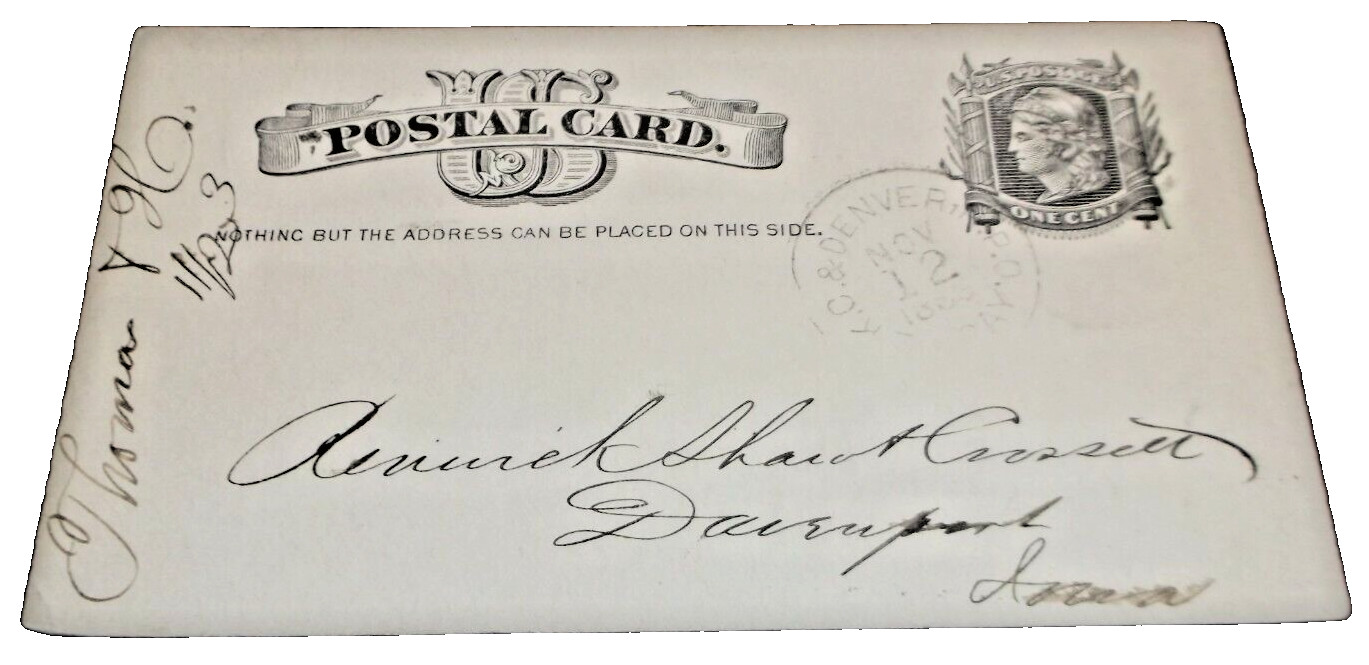 US
POSTAL CARD.
U.S. POSTAGE
ONE CENT
NOTHING BUT THE ADDRESS CAN BE PLACED ON THIS SIDE.
K.C. & DENVER R.P.O.
NOV
12
Renwick Shaw & Crossett
Davenport
Iowa
Thomas & H